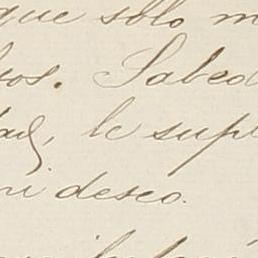 que solo m
os. Sabed
dad, le sup
mi deseo.